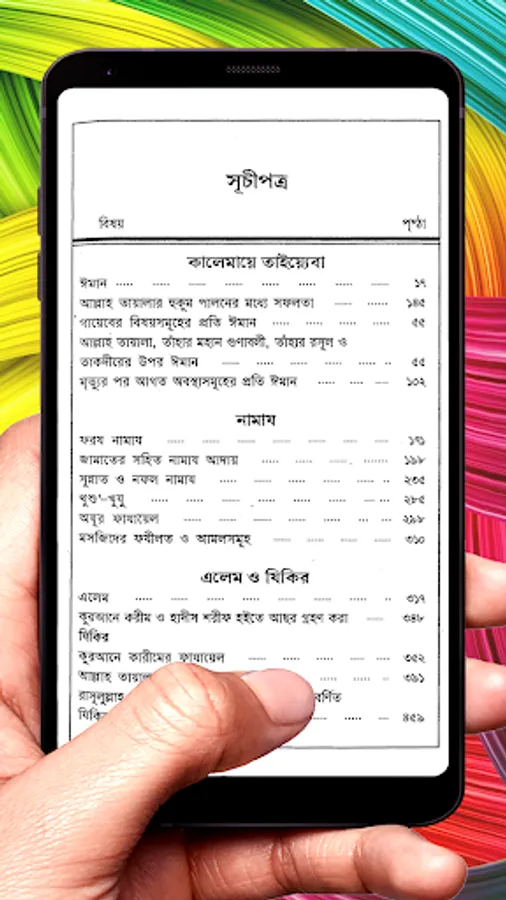 সূচীপত্র
বিষয় পৃষ্ঠা
কালেমায়ে তাইয়্যেবা
ঈমান ..... ..... ..... ..... ..... ..... ..... ১৭
আল্লাহ তায়ালার হুকুম পালনের মধ্যে সফলতা ..... ..... ১৪৫
গায়েবের বিষয়সমূহের প্রতি ঈমান ..... ..... ..... ..... ৫৫
আল্লাহ তায়ালা, তাঁহার মহান গুণাবলী, তাঁহার রসূল ও
তাকদীরের উপর ঈমান ..... ..... ..... ..... ..... .. ৫৫
মৃত্যুর পর আগত অবস্থাসমূহের প্রতি ঈমান ..... .... .... ১০২
নামায
ফরয নামায ..... ..... ..... ..... ..... ..... ১৭১
জামাতের সহিত নামায আদায় ..... ..... ..... ....... ১৯৮
সুন্নাত ও নফল নামায ..... ..... ..... ..... ..... .. ২৩৫
খুশু'-খুযু ..... ..... ..... ..... ..... ..... ..... ২৮৫
অযুর ফাযায়েল ..... ..... ..... ..... ..... ... .. ২৯৮
মসজিদের ফযীলত ও আমলসমূহ ..... ..... ..... ..... ৩১০
এলেম ও যিকির
এলেম ..... ..... ..... ..... ..... ..... ..... .. ৩১৭
কুরআনে করীম ও হাদীস শরীফ হইতে আছর গ্রহণ করা ..... ৩৪৮
যিকির
কুরআনে কারীমের ফাযায়েল ..... ..... ..... ..... ৩৫২
আল্লাহ তায়ালা ..... ..... .. ৩৯১
রাসূলুল্লাহ বর্ণিত
যিকির ..... .. ৪৫৯